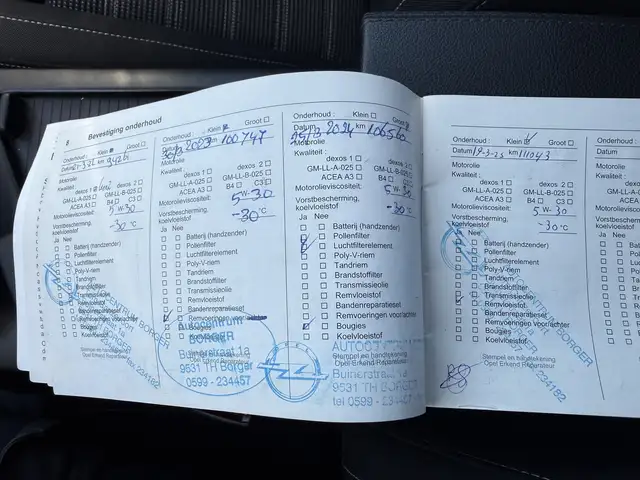 8
Bevestiging onderhoud
Onderhoud : Klein Groot
Datum km 94261
Motorolie
Kwaliteit :
dexos 1 dexos 2
GM-LL-A-025 GM-LL-B-025
ACEA A3 B4 C3
Motorolieviscositeit: 5 W-30
Vorstbescherming, koelvloeistof -30 °C
Ja Nee
Batterij (handzender)
Pollenfilter
Luchtfilterelement
Poly-V-riem
Tandriem
Brandstoffilter
Transmissieolie
Remvloeistof
Bandenreparatieset
Remvoeringen voor/achter
Bougies
Koelvloeistof
Stempel en handtekening
Opel Erkend Reparateur
Onderhoud : Klein Groot
2023 km 100747
Motorolie
Kwaliteit :
dexos 1 dexos 2
GM-LL-A-025 GM-LL-B-025
ACEA A3 B4 C3
Motorolieviscositeit: 5 W-30
Vorstbescherming, koelvloeistof -30 °C
Ja Nee
Batterij (handzender)
Pollenfilter
Luchtfilterelement
Poly-V-riem
Tandriem
Brandstoffilter
Transmissieolie
Remvloeistof
Bandenreparatieset
Remvoeringen
Bougies
Koelvloeistof
Autocentrum
BORGER
Buinerstraat 1a
9531 TH Borger
0599 - 234457
Onderhoud : Klein Groot
Datum 2024 km 106560
Motorolie
Kwaliteit :
dexos 1 dexos 2
GM-LL-A-025 GM-LL-B-025
ACEA A3 B4 C3
Motorolieviscositeit: 5 W-30
Vorstbescherming, koelvloeistof -30 °C
Ja Nee
Batterij (handzender)
Pollenfilter
Luchtfilterelement
Poly-V-riem
Tandriem
Brandstoffilter
Transmissieolie
Remvloeistof
Bandenreparatieset
Remvoeringen voor/achter
Bougies
Koelvloeistof
Stempel en handtekening
Opel Erkend Reparateur
Buinerstraat 1a
9531 TH BORGER
tel 0599 - 234457
Onderhoud : Klein Groot
Datum 19-3-25 km 111043
Motorolie
Kwaliteit :
dexos 1 dexos 2
GM-LL-A-025 GM-LL-B-025
ACEA A3 B4 C3
Motorolieviscositeit: 5 W-30
Vorstbescherming, koelvloeistof -30 °C
Nee
Batterij (handzender)
Pollenfilter
Luchtfilterelement
Poly-V-riem
Tandriem
Brandstoffilter
Transmissieolie
Remvloeistof
Bandenreparatieset
Remvoeringen voor/achter
Bougies
Koelvloeistof
Stempel en handtekening
Opel Erkend Reparateur
Onderhoud :
Datum
Motorolie
Kwaliteit :
Ja Nee